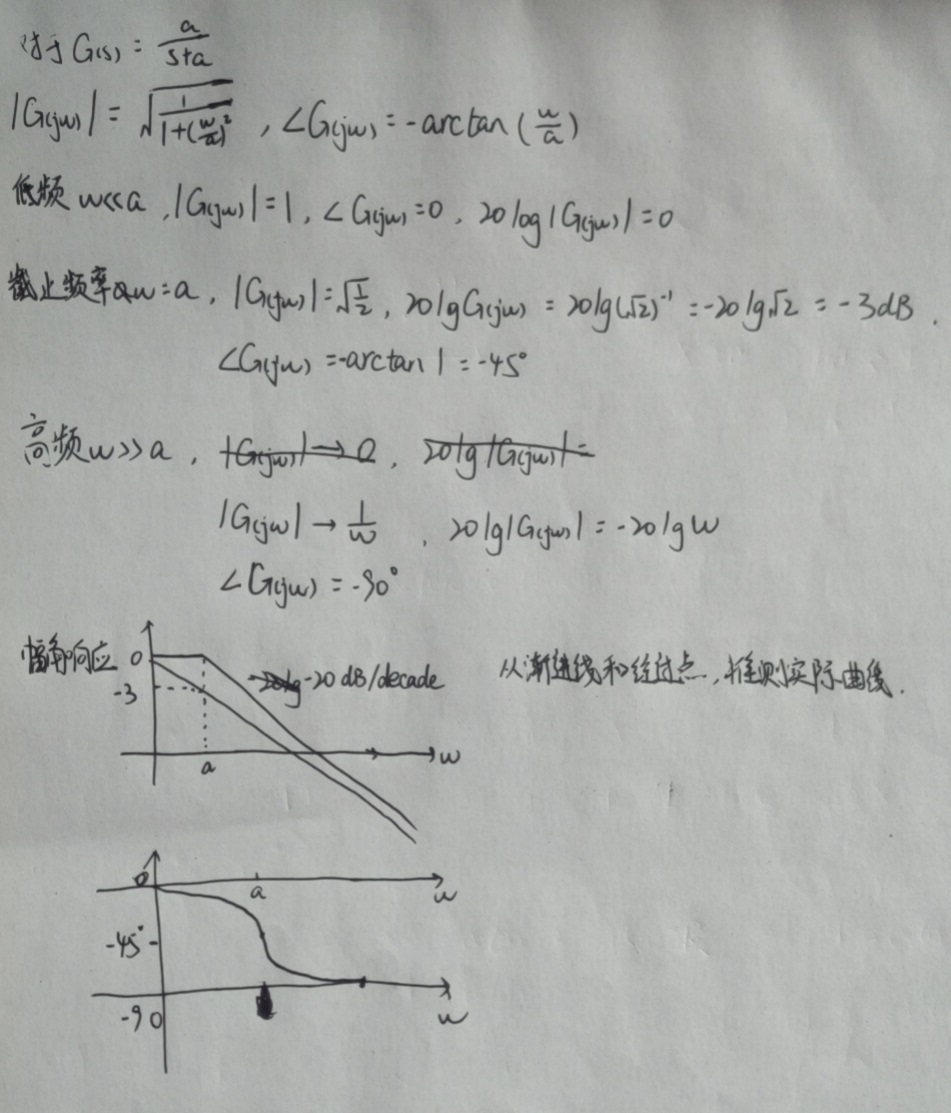 对于 G(s) = a/(s+a)
|G(jw)| = √(1/(1+(w/a)²)) , ∠G(jw) = -arctan(w/a)
低频 w<<a , |G(jw)|=1, ∠G(jw)=0, 20log|G(jw)|=0
截止频率 w=a, |G(jw)|=√(1/2), 20lgG(jw) = 20lg(√2)⁻¹ = -20lg√2 = -3dB.
∠G(jw) = -arctan1 = -45°
高频 w>>a , |G(jw)|→0, 20lg|G(jw)|=
|G(jw)| → 1/w , 20lg|G(jw)| = -20lgw
∠G(jw) = -90°
幅角响应 0
-20lg -20 dB/decade
从渐进线和经过点,推测实际曲线.
-3
a
w
0
a
w
-45°
-90
w